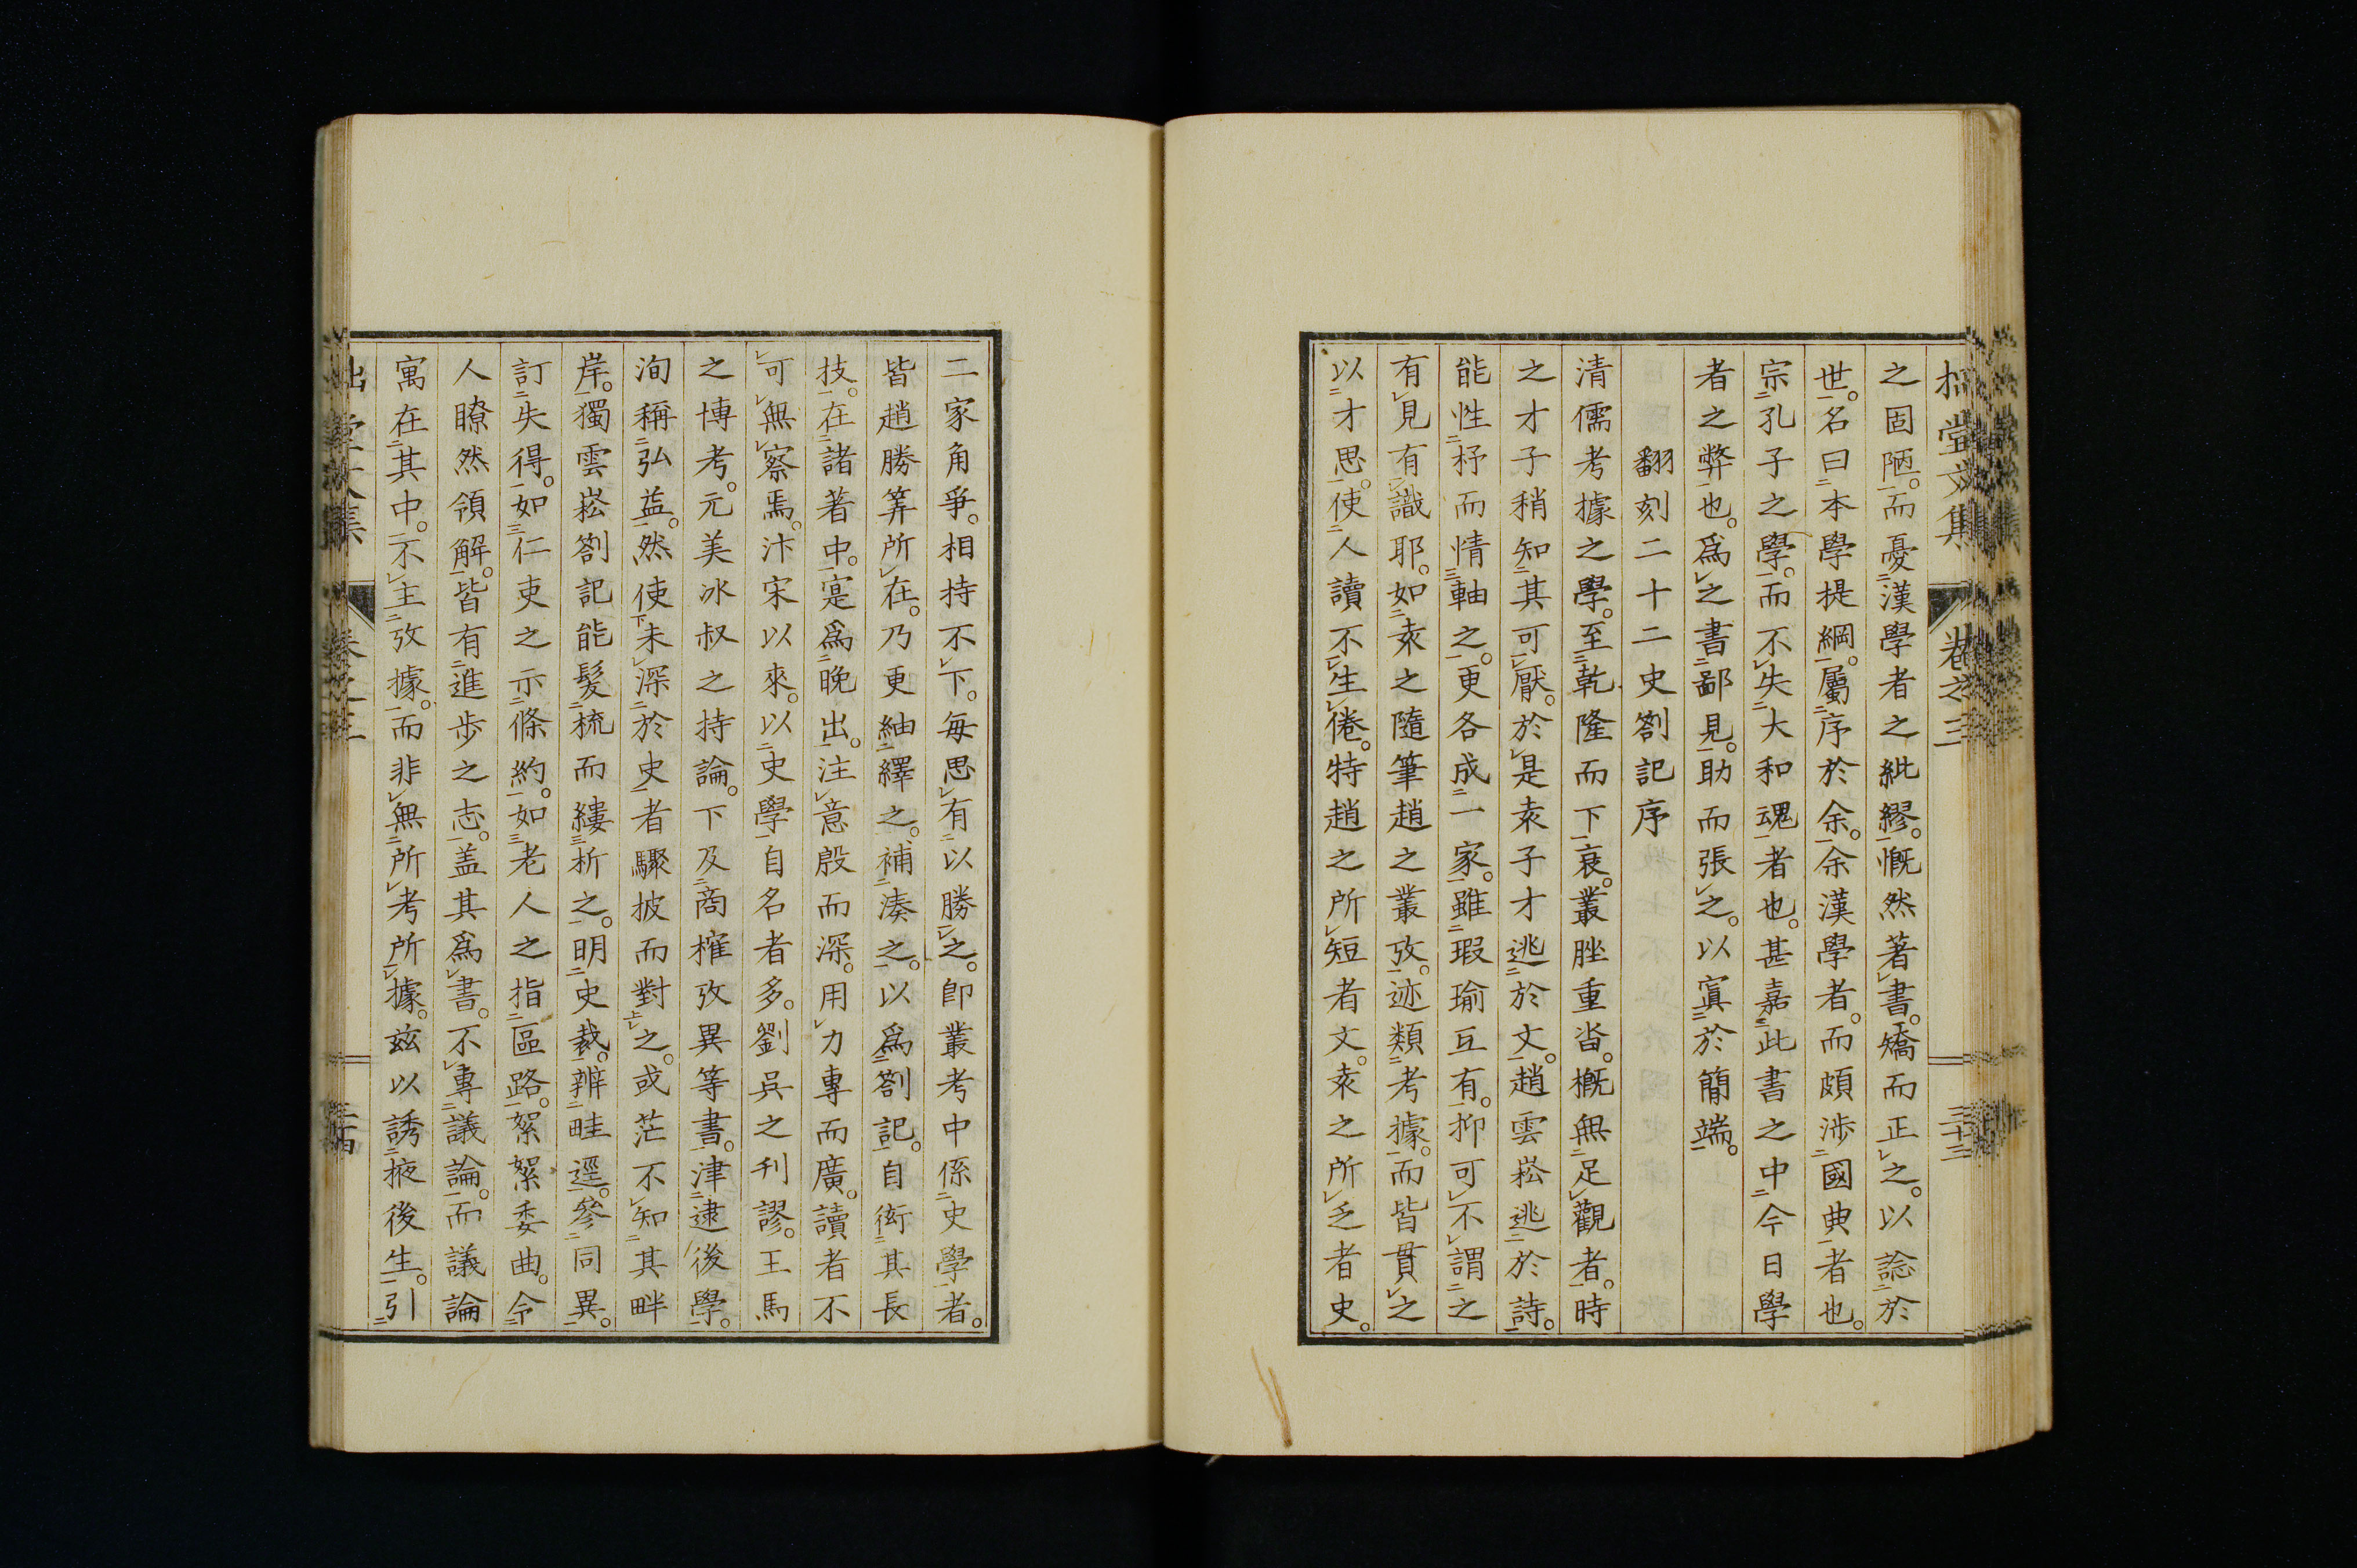 拙堂文集 卷之三 三十三
之固陋。而憂漢學者之紕繆。慨然著書。矯而正之。以諗於
世。名曰本學提綱。屬序於余。余漢學者。而頗涉國典者也。
宗孔子之學。而不失大和魂者也。甚嘉此書之中今日學
者之弊也。爲之書鄙見。助而張之。以寘於簡端。
翻刻二十二史劄記序
清儒考據之學。至乾隆而下衰。叢脞重沓。概無足觀者。時
之才子稍知其可厭。於是袁子才逃於文。趙雲崧逃於詩。
能性抒而情軸之。更各成一家。雖瑕瑜互有。抑可不謂之
有見有識耶。如袁之隨筆趙之叢攷。迹類考據。而皆貫之
以才思。使人讀不生倦。特趙之所短者文。袁之所乏者史。
二家角爭。相持不下。每思有以勝之。卽叢考中係史學者。
皆趙勝筭所在。乃更紬繹之。補湊之。以爲劄記。自衒其長
技。在諸著中。寔爲晚出。注意殷而深。用力專而廣。讀者不
可無察焉。汴宋以來。以史學自名者多。劉呉之刊謬。王馬
之博考。元美冰叔之持論。下及商榷攷異等書。津逮後學。
洵稱弘益。然使未深於史者驟披而對之。或茫不知其畔
岸。獨雲崧劄記能髮梳而縷析之。明史裁。辨畦逕。參同異。
訂失得。如仁吏之示條約。如老人之指區路。絮絮委曲。令
人瞭然領解。皆有進步之志。盖其爲書。不專議論。而議論
寓在其中。不主攷據。而非無所考所據。茲以誘掖後生。引
堂文集 卷之三